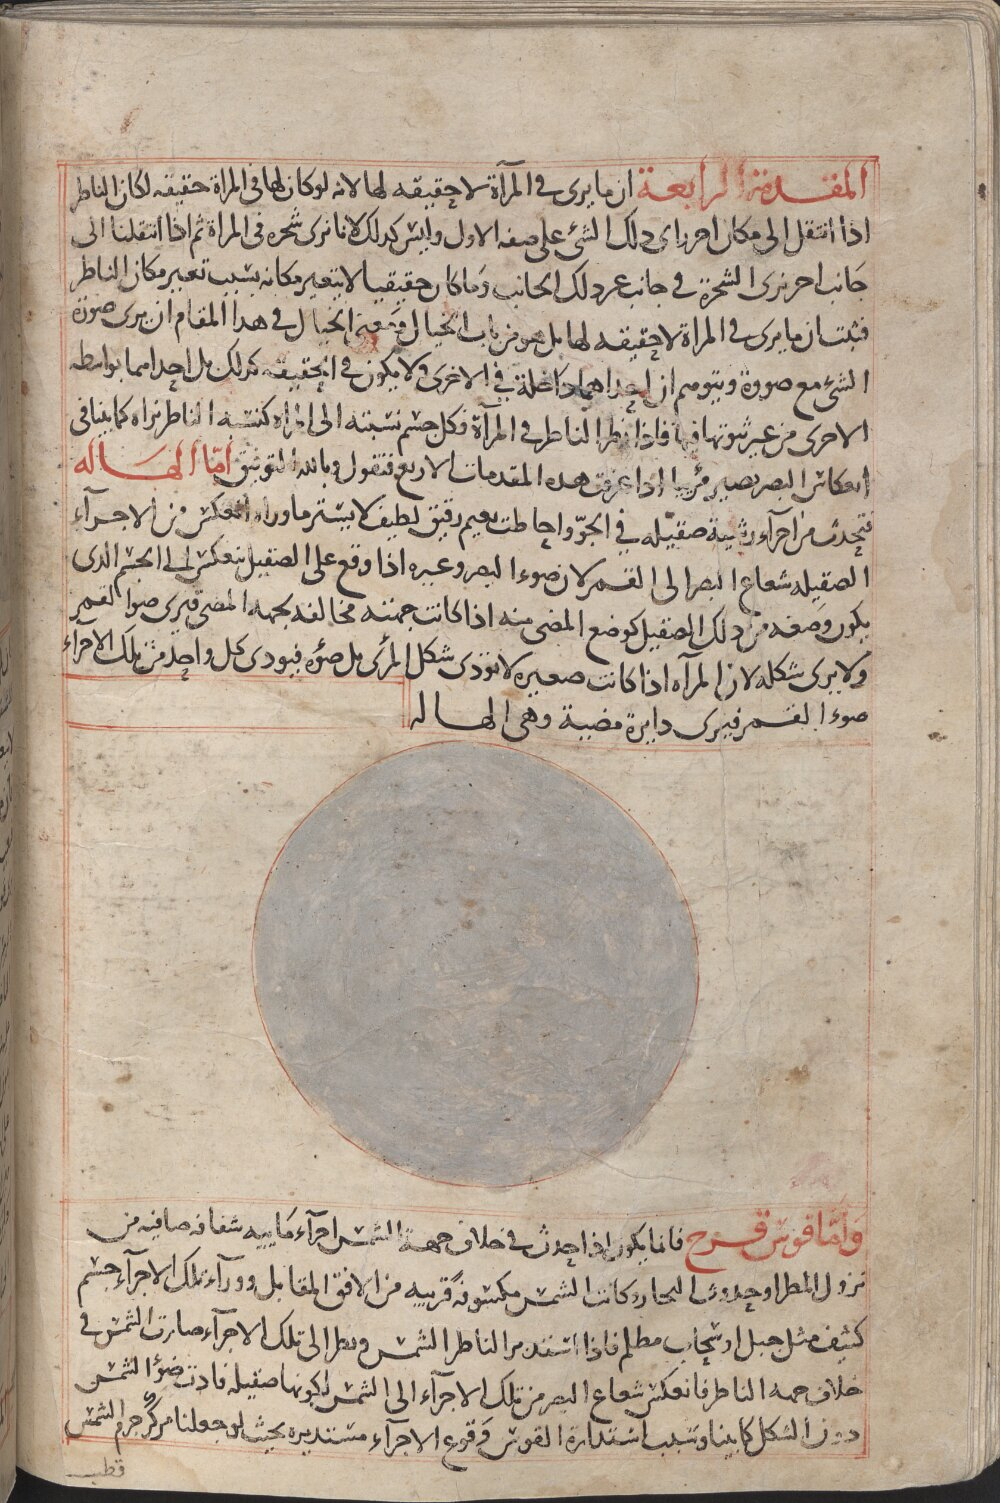 المقدمة الرابعة ان ما يرى فى المرآة لا حقيقه لها لانه لو كان لها فى المراة حقيقه لكان الناظر
اذا انتقل الى مكان اخر راى ذلك الشئ على صفه الاول وليس كذلك لانا نرى شجره فى المراة ثم اذا انتقلنا الى
جانب اخر نرى الشجرة فى جانب عير ذلك الجانب وما كان حقيقيا لا يتغير مكانه بسبب تغير مكان الناظر
فثبت ان ما يرى فى المراة لا حقيقه لها بل هو من باب الخيال ومعنى الخيال فى هذا المقام ان يرى صورة
الشئ مع صورة ويتوهم ان احداهما داخلة فى الاخرى ولا يكون فى الحقيقه كذلك بل احداهما بواسطه
الاخرى من غير ثبوتها فيها فاذا نظر الناظر فى المرآة فكل جسم نسبته الى المراه كنسبه الناظر يراه كما بينا فى
انعكاس البصر يصير مرئيا اذا عرفت هذه المقدمات الاربع فنقول وبالله التوفيق امّا الهاله
فتحدث من اجزآء رشية صقيله فى الجوّ واحاطت بغيم رقيق لطيف لا يستر ما وراءه انعكس من الاجزآء
الصقيله شعاع البصر الى القمر لان ضوء البصر وغيره اذا وقع على الصقيل ينعكس الى الجسم الذى
يكون وضعه من ذلك الصقيل كوضع المضى منه اذا كانت جهته مخالفه بجهه المضى فيرى ضوا القمر
ولا يرى شكله لان المرآه اذا كانت صغيره لا تؤدى شكل المرئى بل ضوءه فيودى كل واحد من تلك الاجزاء
ضوءا لقمر فيرى دايرة مضيية وهى الهاله
وامّا قوس قزح فانما يكون اذا حدث فى خلاف جهة الشمس اجزآء ماييه شفافه صافيه من
نزول المطر او حدوث البخار وكانت الشمس مكشوفة قريبه من الافق المقابل ووراء تلك الاجزآء جسم
كثيف مثل جبل او سحاب مظلم فاذا استدبر الناظر الشمس ونظر الى تلك الاجزآء صارت الشمس فى
خلاف جهه الناظر فانعكس شعاع البصر من تلك الاجزآء الى الشمس لكونها صقيله فادت ضوءا الشمس
دون الشكل كما بينا وسبب استدارة القوس وقوع الاجزآء مستديره بحيث لو جعلنا مركز جرم الشمس
قطب